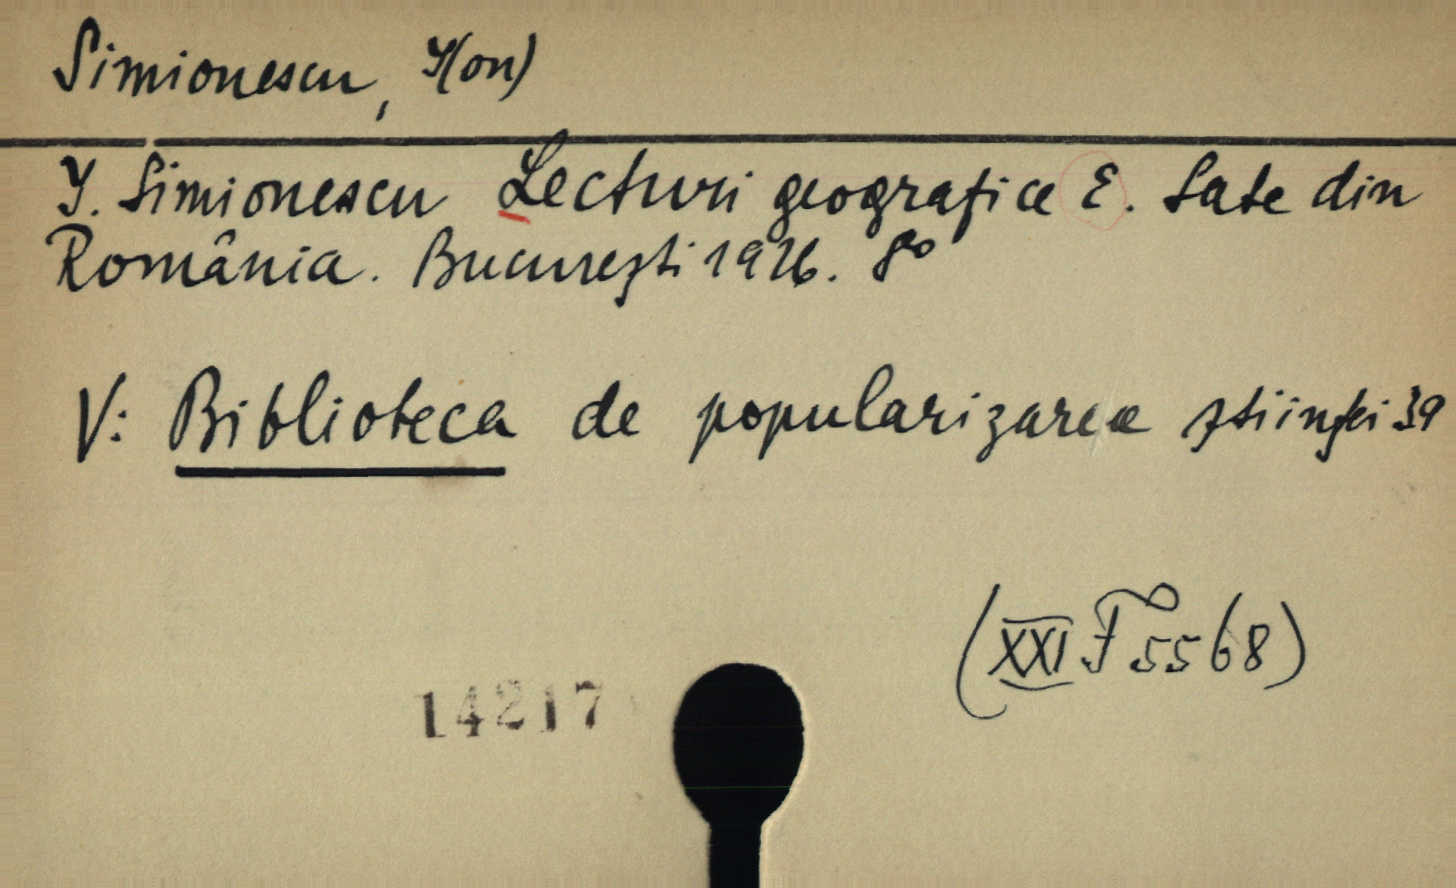 Simionescu, I(on)
I. Simionescu Lecturi geografice E. Sate din
România. București 1926. 8°
V: Biblioteca de popularizarea științei 39
(XXI F 5568)
14217